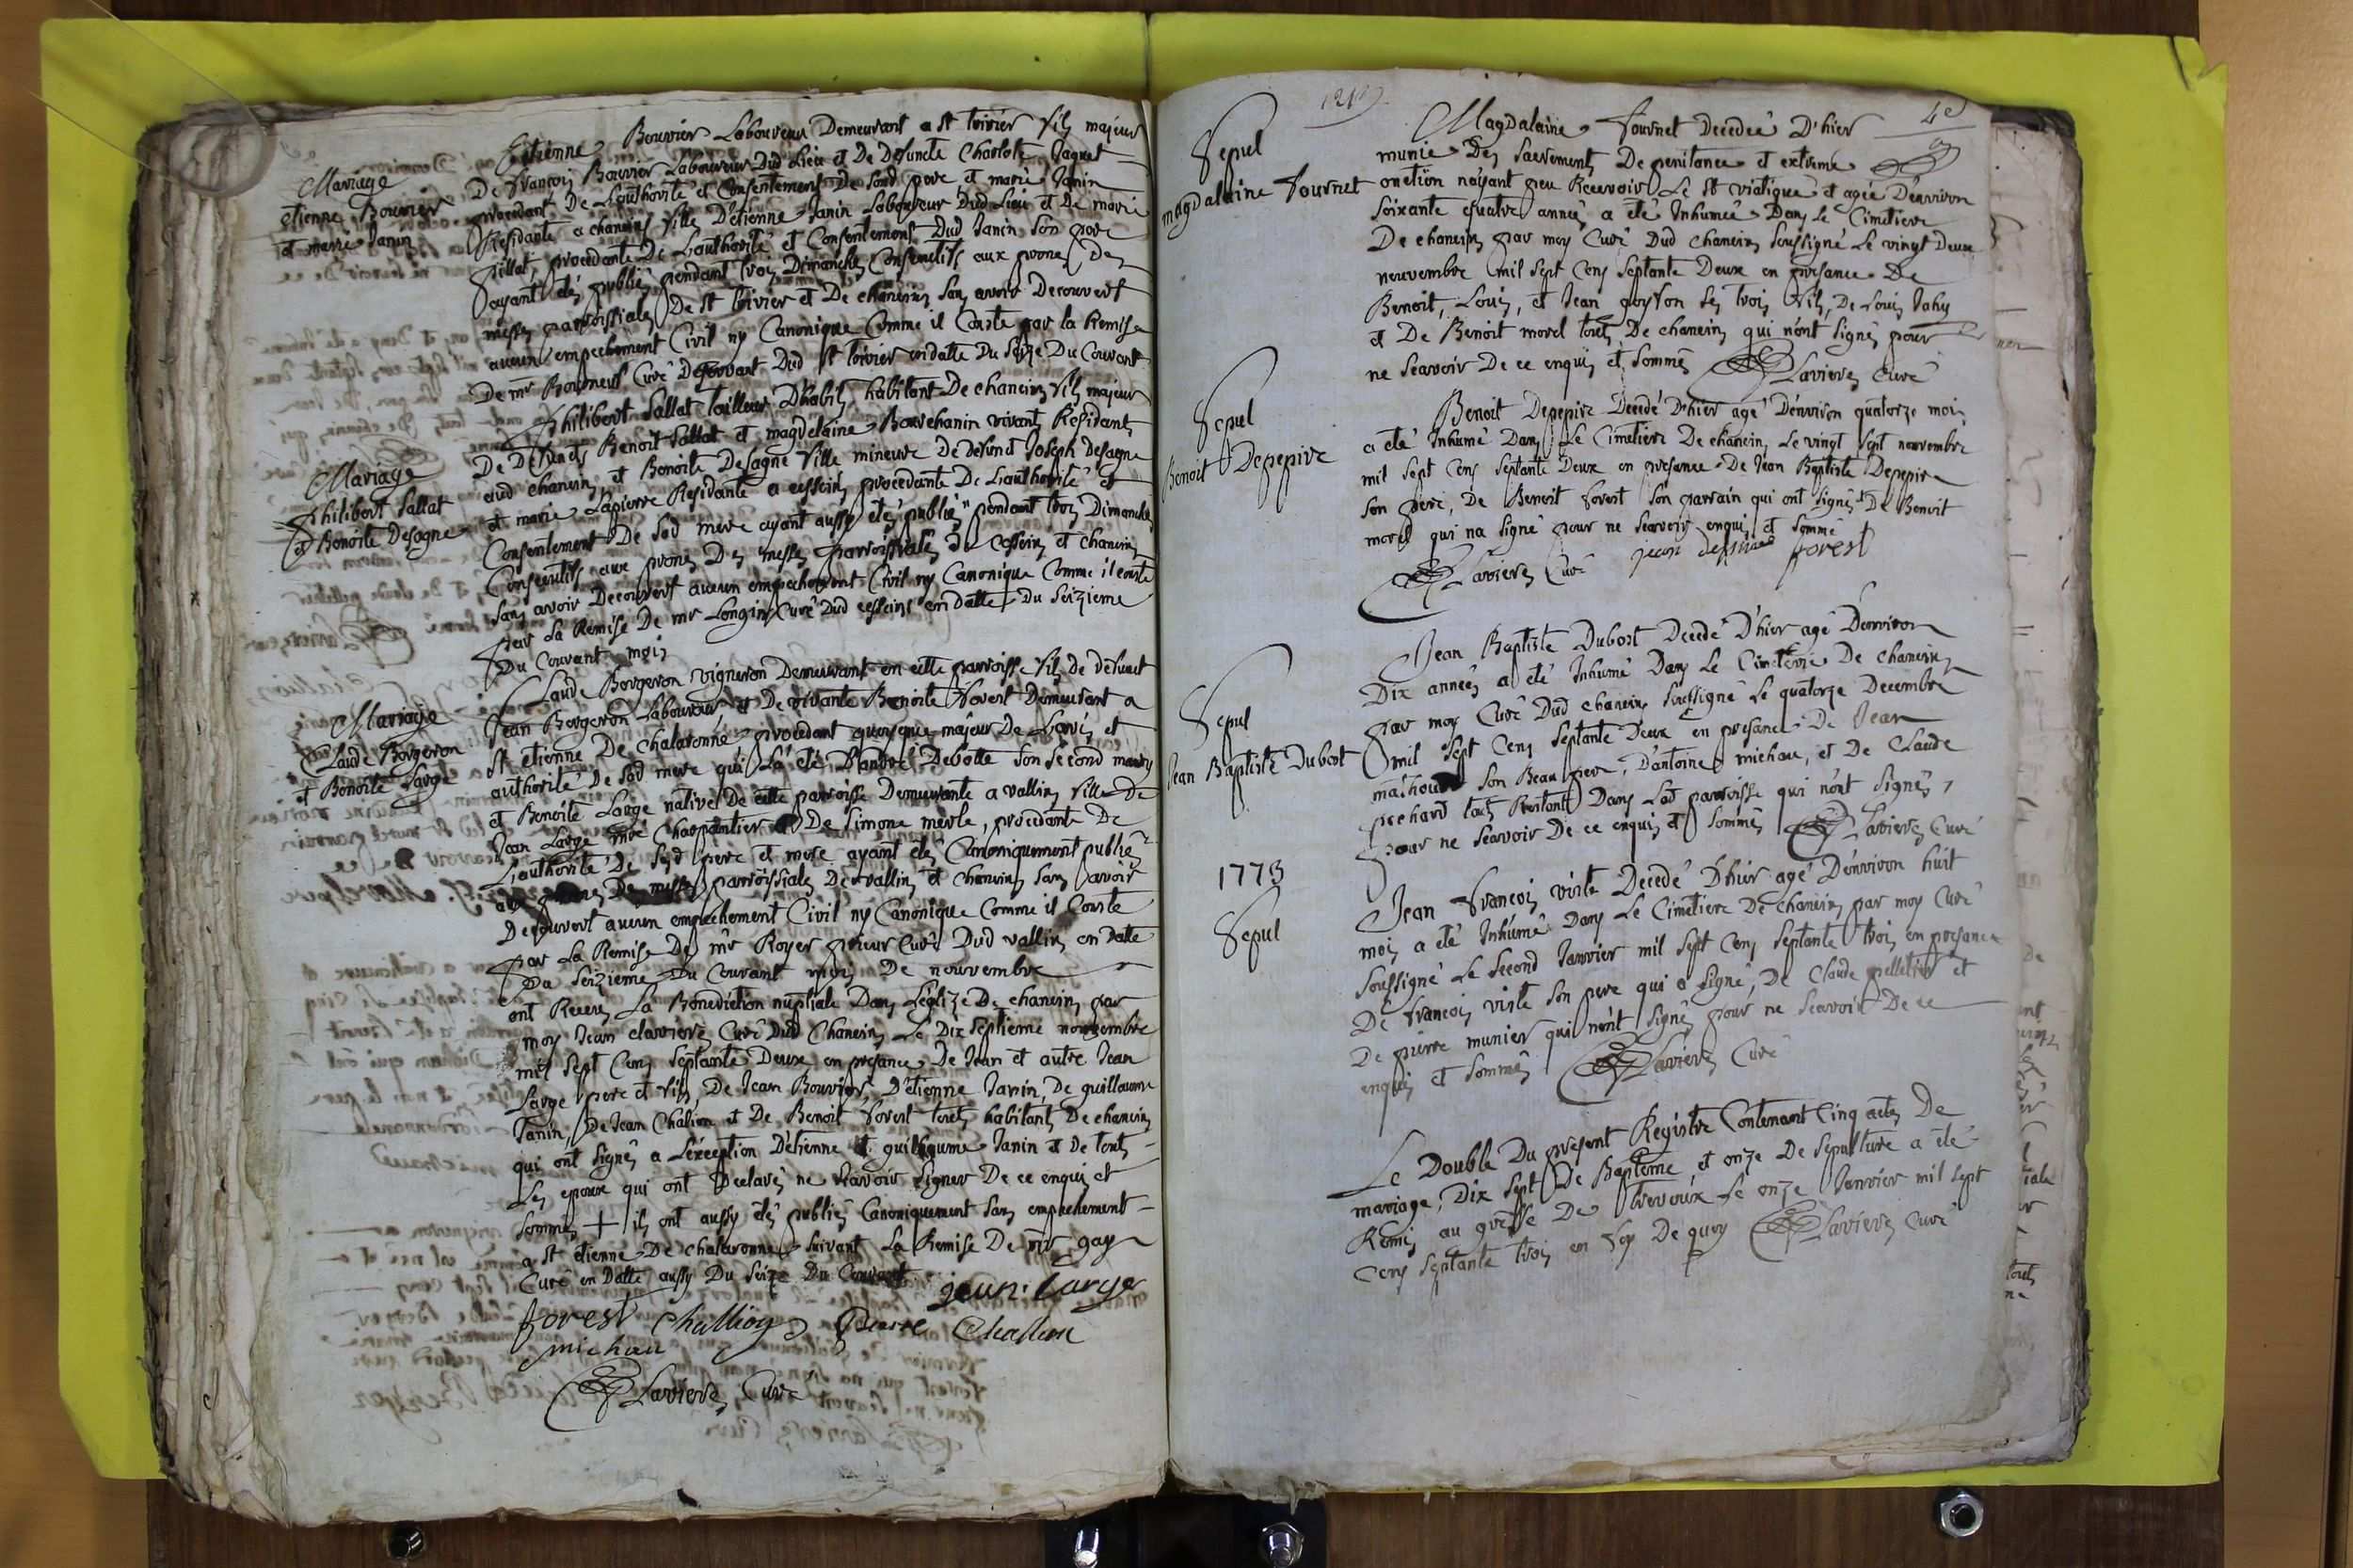 Mariage
etienne Bouvier
et marie Janin
Etienne Bouvier Laboureur Demeurant a st trivier fils majeur
De françois Bouvier Laboureur Dud Lieu et De Defuncte Charlote Jaquet
procedant De Lauthorité et Consentement De sond pere et marie Janin
Residante a chaneins fille D'étienne Janin Laboureur Dud Lieu et De marie
pillat, procedante De Lauthorité et Consentement Dud Janin son pere
ayant étés publiés pendant trois Dimanches Consecutifs aux prones Des
messes parroissiales De st trivier et De chaneins sans avoir Decouvert
aucun empechement Civil ny Canonique Comme il Conste par la Remise
De mr Curé Desservant Dud st trivier en datte Du seize Du Courant
Mariage
philibert Sallat
et Benoite Desagne
Philibert Sallat tailleur D'habits habitant De chaneins fils majeur
De Defuncts Benoit Sallat et magdelaine Bouchanin vivants Residants
aud chaneins et Benoite Desagne fille mineure De Defunct Joseph Desagne
et marie Lapierre Residante a cesseins procedante De Lauthorité et
Consentement De sad mere ayant aussy étés publiés pendant trois Dimanches
Consecutifs aux prones Des messes parroissiales De Cesseins et chaneins
sans avoir Decouvert aucun empechement Civil ny Canonique Comme il conste
par La Remise De mr Longin Curé Dud cesseins en datte Du seizieme
Du Courant mois
Mariage
Claude Bergeron
et Benoite Large
Claude Bergeron vigneron Demeurant en cette parroisse fils de defunct
Jean Bergeron Laboureur et De vivante Benoite forest Demeurant a
st etienne De chalaronne procedant quoyque majeur De Lavis et
authorité De sad mere qui La été D'andré Debotte son second mary
et Benoite Large native De cette parroisse Demeurante a vallins fille de
Jean Large mre Charpantier et De simone merle, procedante De
Lauthorité De sesd pere et mere ayant étés Canoniquement publiés
aux prones Des messes parroissiales De vallins et chaneins sans avoir
Decouvert aucun empechement Civil ny Canonique Comme il Conste
par La Remise De mr Royer prieur Curé Dud vallins en datte
Du seizieme Du Courant mois De nouvembre
ont Receus La Benediction nuptiale Dans Léglize De chaneins par
moy Jean clavieres Curé Dud Chaneins Le Dix septieme nouvembre
mil sept Cens septante Deux en presance De Jean et autre Jean
Large pere et fils, De Jean Bouvier, D'étienne Janin, De guillaume
Janin, De Jean Chalion et De Benoit forest touts habitants De chaneins
qui ont signés a L'exception D'étienne et guillaume Janin et De touts
Les epoux qui ont Declarés ne scavoir signer De ce enquis et
sommés + ils ont aussy étés publiés Canoniquement sans empechement
a st étienne De chalaronne suivant La Remise De mr gay
Curé en Datte aussy Du seize Du Courant
jean Large
forest Challioy Pierre Challion
michau
Clavieres Curé
1219
4e
Sepul
magdalaine Fournet
Magdalaine Fournet Decedée D'hier
munie Des sacrements De penitance et extreme
onction n'ayant peu Recevoir Le st viatique et agée D'environ
soixante quatre années a été Inhumée Dans Le Cimetiere
De chaneins par moy Curé Dud chaneins soussigné Le vingt Deux
nouvembre mil sept Cens septante Deux en presance De
Benoit, Louis, et Jean goyson ses trois fils, De Louis Jahy
et De Benoit morel touts De chaneins qui n'ont signés pour
ne scavoir De ce enquis et sommés Clavieres Curé
Sepul
Benoit Depepire
Benoit Depepire Decedé D'hier agé D'environ quatorze mois
a été Inhumé Dans Le Cimetiere De chaneins Le vingt sept nouvembre
mil sept Cens septante Deux en presance De Jean Baptiste Depepire
son pere, De Benoit forest son parrain qui ont signés et De Benoit
morel qui na signé pour ne scavoir enquis et sommé
Clavieres Curé jean forest
Sepul
Jean Baptiste Dubost
Jean Baptiste Dubost Decedé D'hier agé D'environ
Dix années a été Inhumé Dans Le Cimetiere De chaneins
par moy Curé Dud chaneins soussigné Le quatorze Decembre
mil sept Cens septante Deux en presance De Jean
mathoud son Beau pere, D'antoine michau, et De Claude
prehard touts Restants Dans Lad parroisse qui n'ont signés,
pour ne scavoir De ce enquis et sommés Clavieres Curé
1773
Sepul
Jean François virte Decedé D'hier agé D'environ huit
mois a été Inhumé Dans Le Cimetiere De chaneins par moy Curé
soussigné Le second Janvier mil sept Cens septante trois en presance
De françois virte son pere qui a signé, De Claude pelletier et
De pierre munier qui n'ont signés pour ne scavoir De ce
enquis et sommés Clavieres Curé
Le Double Du present Registre Contenant Cinq actes De
mariage, Dix sept De Baptême et onze De sepulture a été
Remis au greffe De trevoux Le onze Janvier mil sept
Cens septante trois en foy De quoy Clavieres Curé